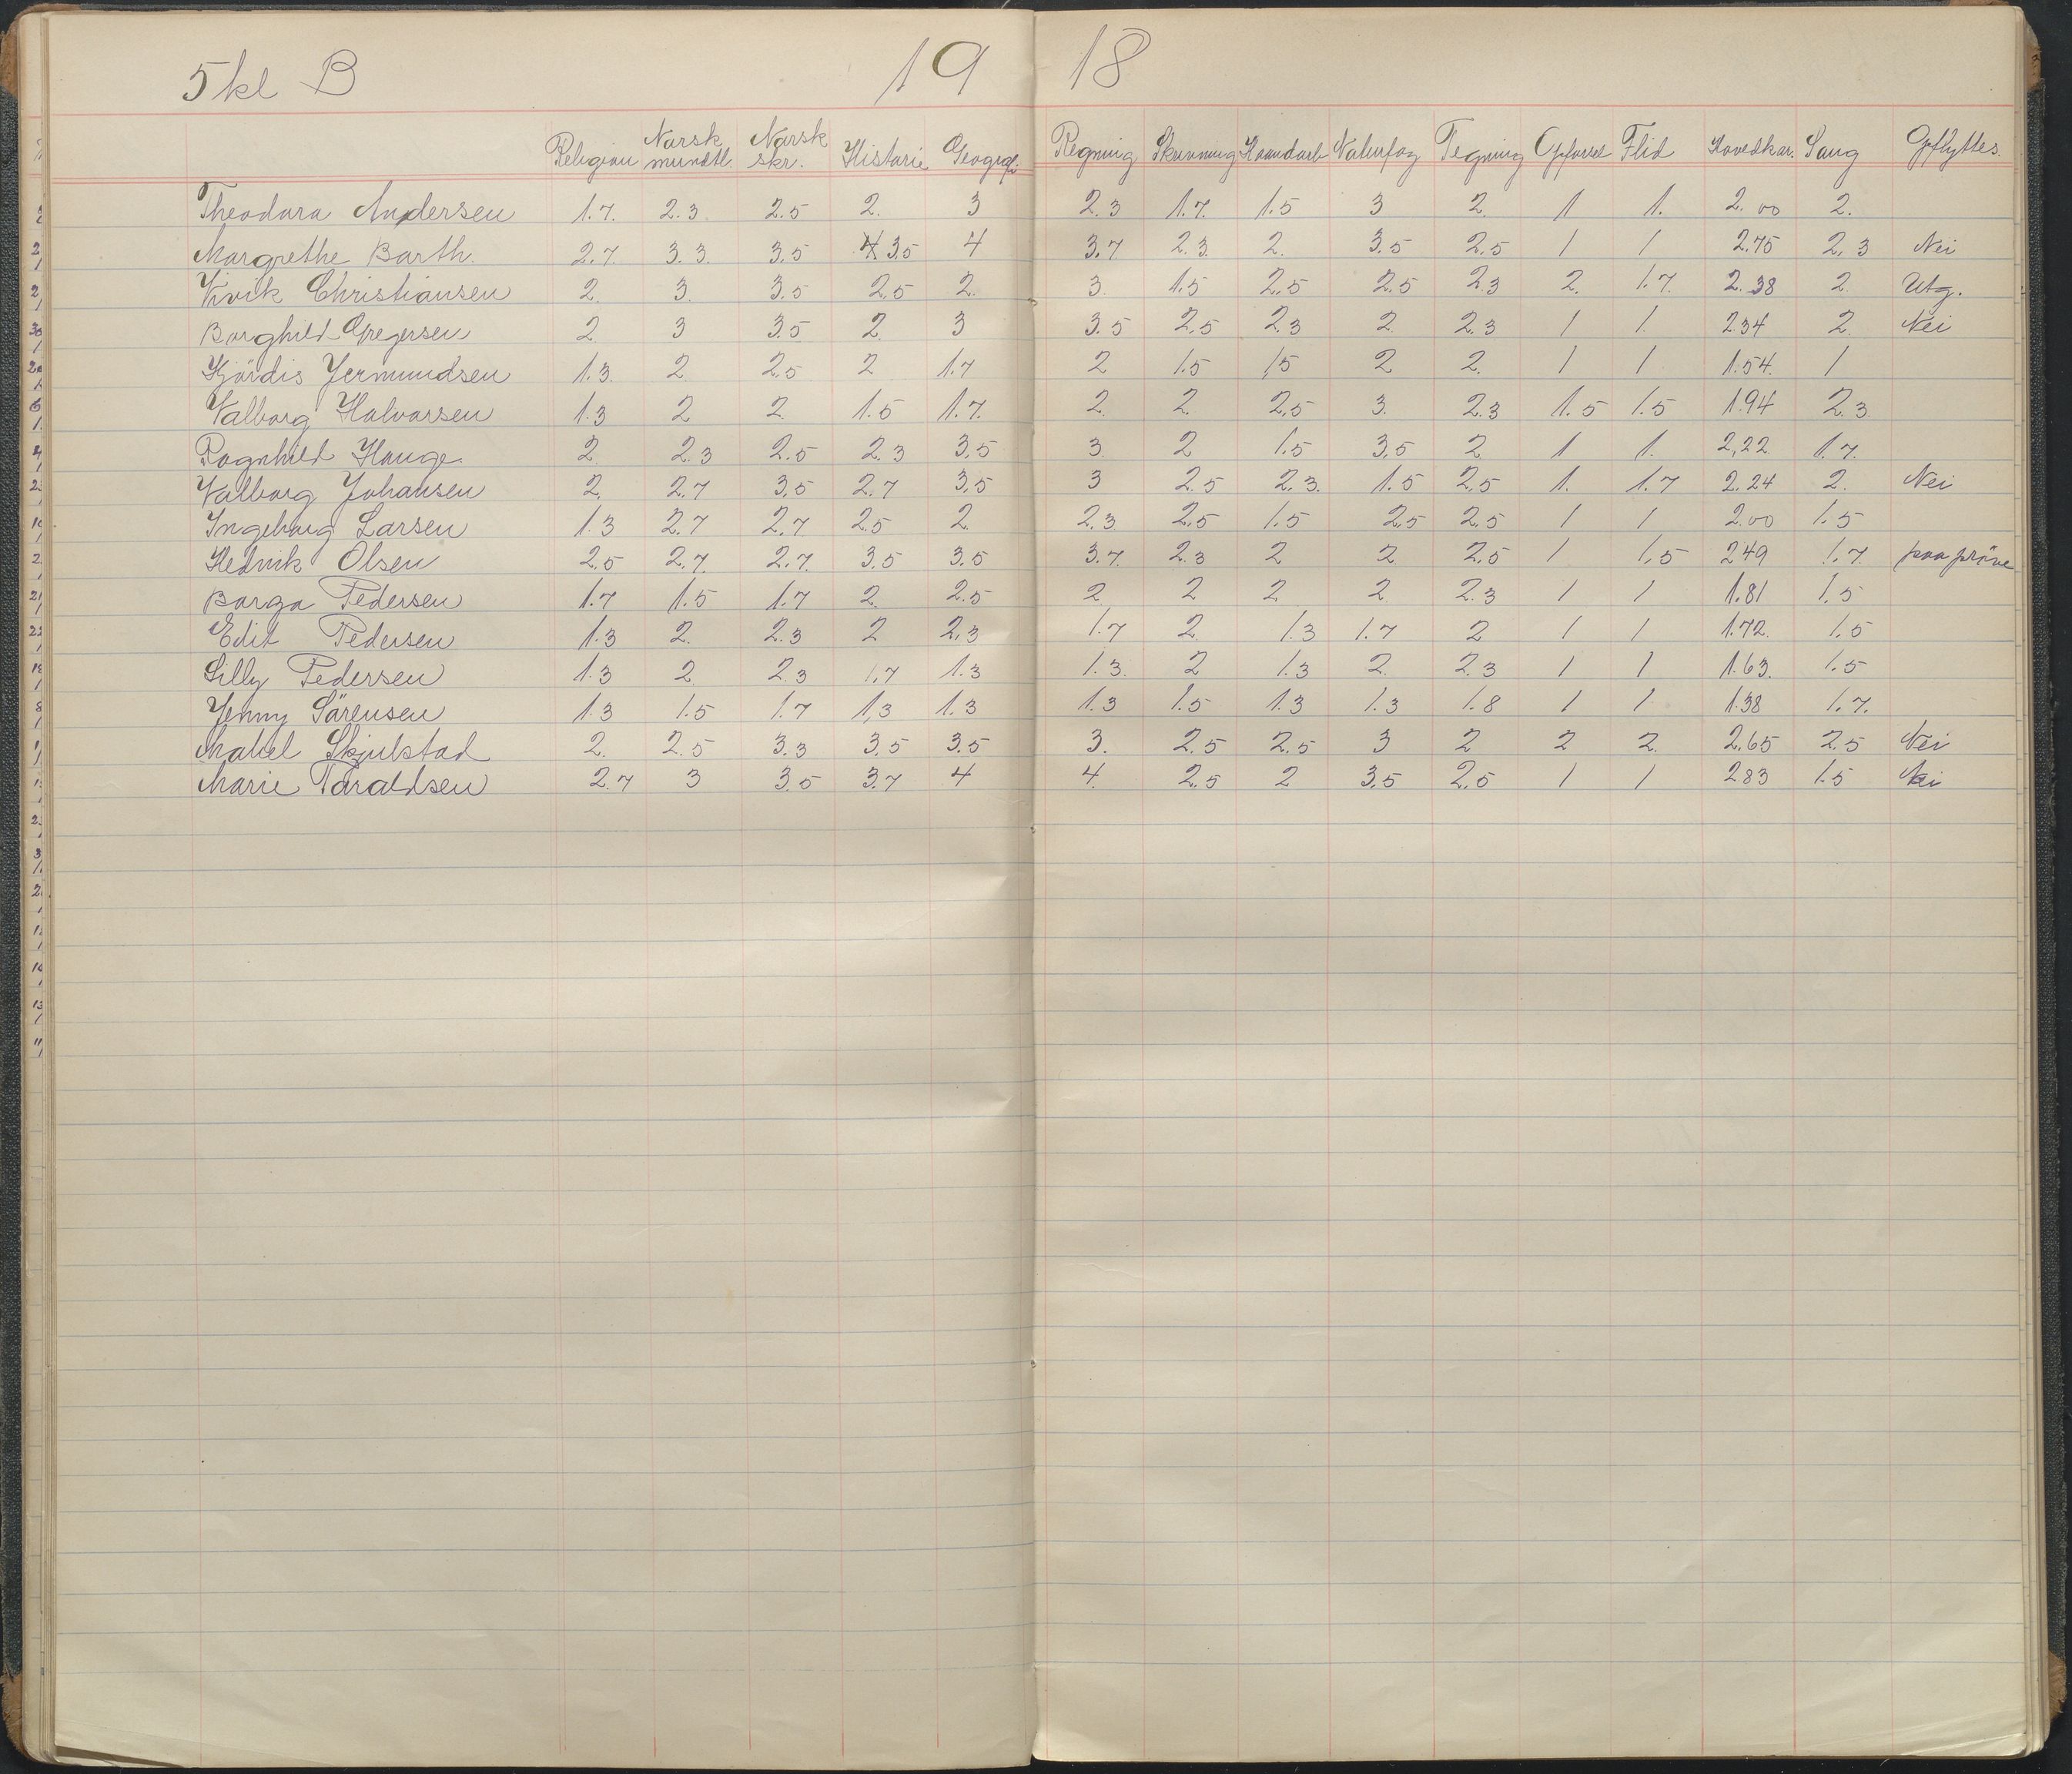 5 kl B 19 18
Religion Norsk mundtl. Norsk skr. Historie Geografi Regning Skrivning Haandarb Naturfag Tegning Opførsel Flid Hovedkar. Sang Opflyttes.
Theodora Andersen 1.7. 2.3. 2.5 2. 3 2.3 1.7. 1.5 3 2. 1 1. 2.00 2.
Margrethe Barth. 2.7. 3.3. 3.5 4 3.5 4 3.7 2.3. 2. 3.5 2.5 1 1 2.75 2.3 Nei
Vivik Christiansen 2. 3. 3.5 2.5 2. 3. 1.5 2.5 2.5 2.3 2. 1.7. 2.38 2. Utg.
Borghild Gregersen 2. 3 3.5 2. 3 3.5 2.5 2.3 2 2.3 1 1. 2.34 2. Nei
Hjördis Jermundsen 1.3. 2. 2.5 2 1.7 2 1.5 1,5 2 2. 1 1 1.54. 1
Valborg Halvorsen 1.3 2 2. 1.5 1.7. 2. 2. 2,5 3. 2.3 1.5 1.5 1.94 2.3
Ragnhild Hauge. 2. 2.3 2.5 2.3 3,5 3 2 1.5 3,5 2 1 1. 2,22. 1.7.
Valborg Johansen 2. 2.7 3,5 2.7 3,5 3 2.5 2.3. 1.5 2,5 1. 1.7 2.24 2. Nei
Ingeborg Larsen 1.3 2.7 2.7. 2.5 2. 2.3. 2.5 1.5 2.5 2.5 1 1 2.00 1.5
Hedvik Olsen 2.5 2.7. 2.7. 3.5 3.5 3.7. 2.3 2 2. 2,5 1 1,5 2.49 1.7. paa pröve
Borga Pedersen 1.7 1.5 1.7 2. 2.5 2. 2 2 2 2.3 1 1 1.81 1.5
Edit Pedersen 1.3 2. 2.3 2 2,3 1.7 2. 1.3 1.7 2 1 1 1.72. 1.5
Lilly Pedersen 1.3 2. 2.3 1.7 1.3 1.3. 2 1.3 2. 2.3 1 1 1.63. 1.5
Jenny Sörensen 1.3 1.5 1.7 1,3 1.3 1.3 1.5 1.3 1.3 1.8 1 1 1.38 1.7.
Mabel Skjulstad 2. 2.5 3.3 3.5 3.5 3. 2.5 2.5 3 2 2 2. 2.65 2.5 Nei
Marie Taraldsen 2.7 3 3.5 3.7 4 4. 2.5 2 3,5 2,5 1 1 2.83 1.5 Nei